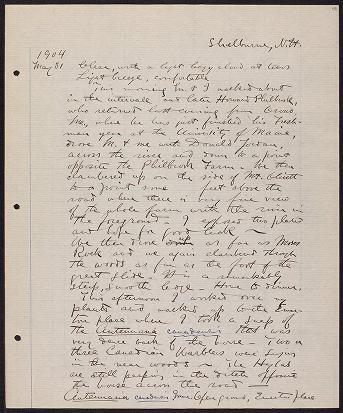 Shelburne, N.H.
1904
May 31 Clear, with a light hazy cloud at times
Light breeze, comfortable
This morning but I walked about
in the intervale and later Howard Philbrook,
who returned last evening from Orono
Me, where he has just finished his Fresh-
man year at the University of Maine,
drove M. & me with Donald
across the river and down to a point
opposite the Philbrook Farm. We then
clambered up on the side of Mt.
to a point some feet above the
road where there is very fine view
of the whole farm with the river in
the foreground - I exposed two plates
and hope for good luck -
We then drove as far as Moses
Rock and we again clambered through
the woods as far as the foot of the
great slide - It is a remarkably
steep, smooth ledge - Home to dinner.
This afternoon I worked over my
plants and walked up to the
place where I took a
the Antennaria canadensis that was
very dense back of the house - Two or
three Canadian Warblers were
in the near woods - The Hylas
are still peeping in the ditch opposite
the house across the road -
Antennaria canadensis open ground, place